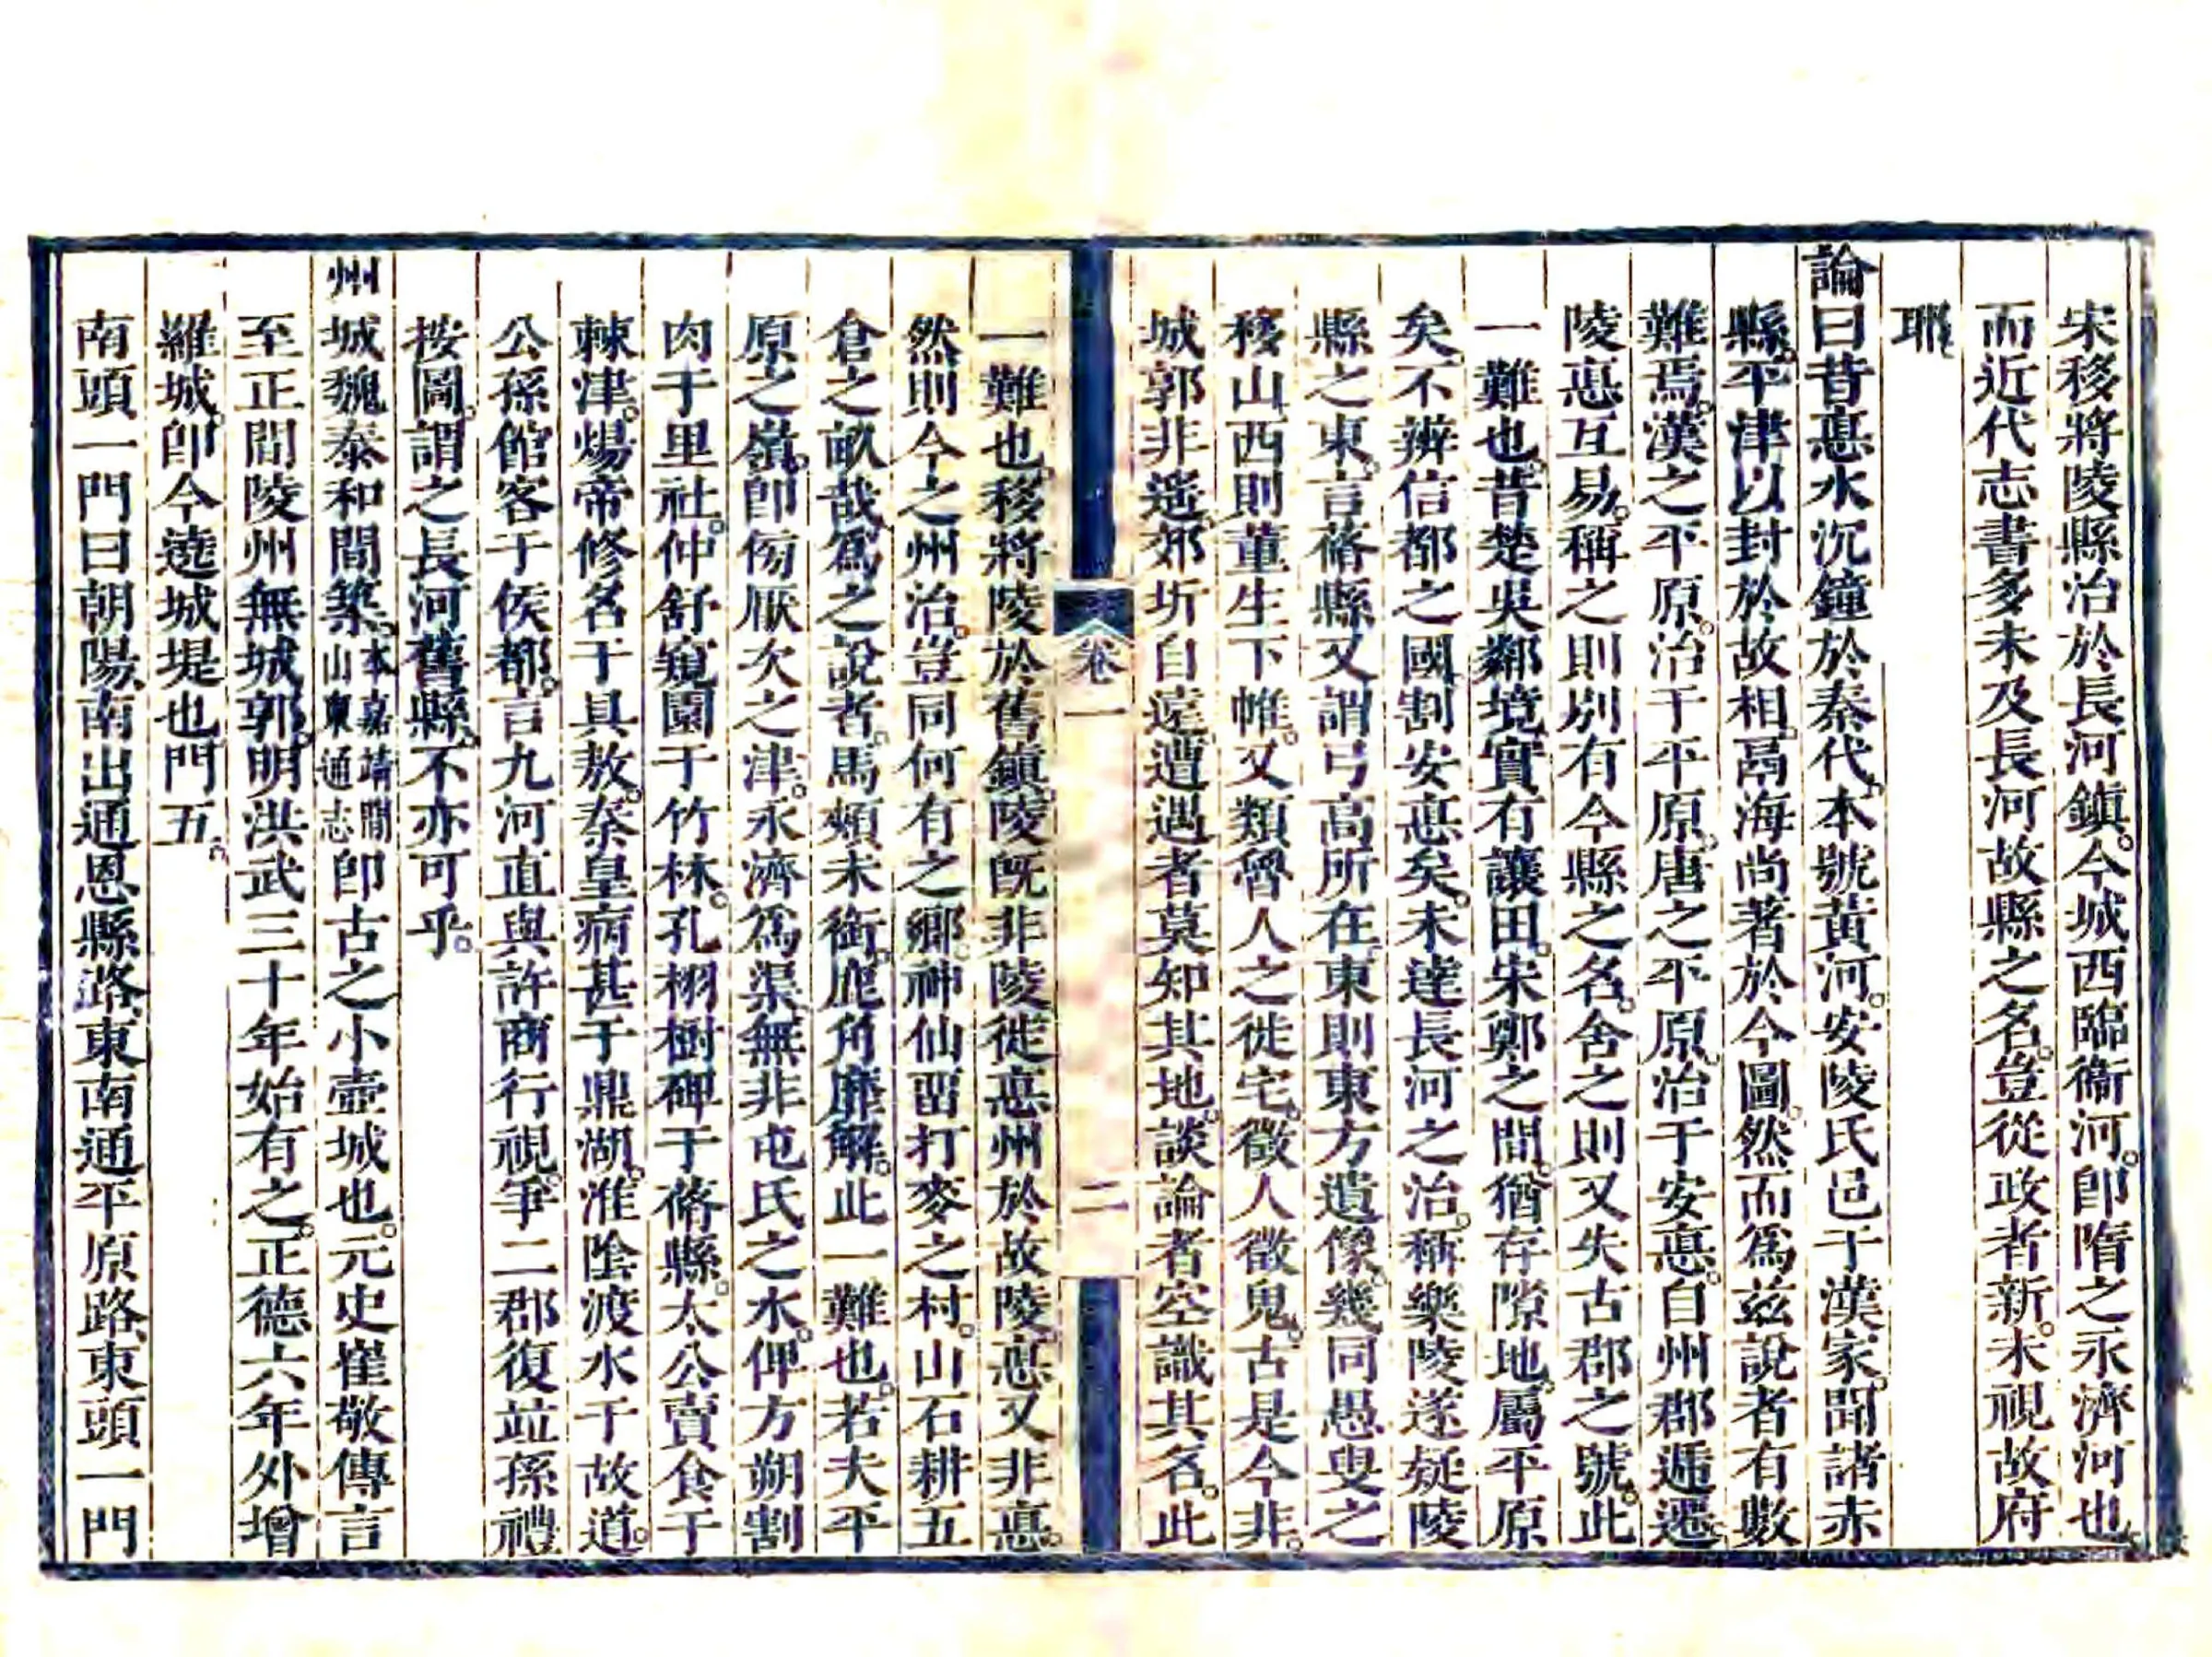 宋移將陵縣治於長河鎮。今城西臨衞河。卽隋之永濟河也。
而近代志書多未及長河故縣之名。豈從政者新。未視故府
耶
論曰昔悳水沉鐘於秦代。本號黃河。安陵氏邑于漢家。聞諸赤
縣。平津以封於故相。鬲海尚著於今圖。然而爲茲說者有數
難焉。漢之平原。治于平原。唐之平原。治于安悳。自州郡遞遷。
陵悳互易。稱之則別有今縣之名。舍之則又失古郡之號。此
一難也。昔楚吳鄰境實有讓田。宋鄭之間。猶存隙地。屬平原
矣。不辨信都之國。割安悳矣。未達長河之治。稱樂陵遂疑陵
縣之東。言蓨縣又謂弓高所在。東則東方遺像。幾同愚叟之
移山。西則董生下帷。又類魯人之徙宅。徵人徵鬼。古是今非。
城郭非遙。郊圻自遠。遭遇者莫知其地。談論者空識其名。此
卷一
二
一難也。移將陵於舊鎮。陵旣非陵。徙悳州於故陵。悳又非悳。
然則今之州治。豈同何有之鄉。神仙畱打麥之村。山石耕五
倉之畝哉。爲之說者。馬頰未銜。鹿角靡解。此一難也。若夫平
原之嶺。卽仞厭次之津。永濟爲渠。無非屯氏之水。俾方朔割
肉于里社。仲舒窺園于竹林。孔栩樹碑于蓨縣。太公賣食于
棘津。煬帝修名于具敖。秦皇病甚于鼎湖。淮陰渡水于故道。
公孫館客于侯都。言九河直與許商行視。爭二郡復竝孫禮
按圖。謂之長河舊縣。不亦可乎。
州城魏泰和間築。本嘉靖間山東通志卽古之小壺城也。元史崔敬傳言
至正間陵州無城郭。明洪武三十年始有之。正德六年外增
羅城。卽今遶城堤也。門五。
南頭一門曰朝陽。南出通恩縣路。東南通平原路。東頭一門